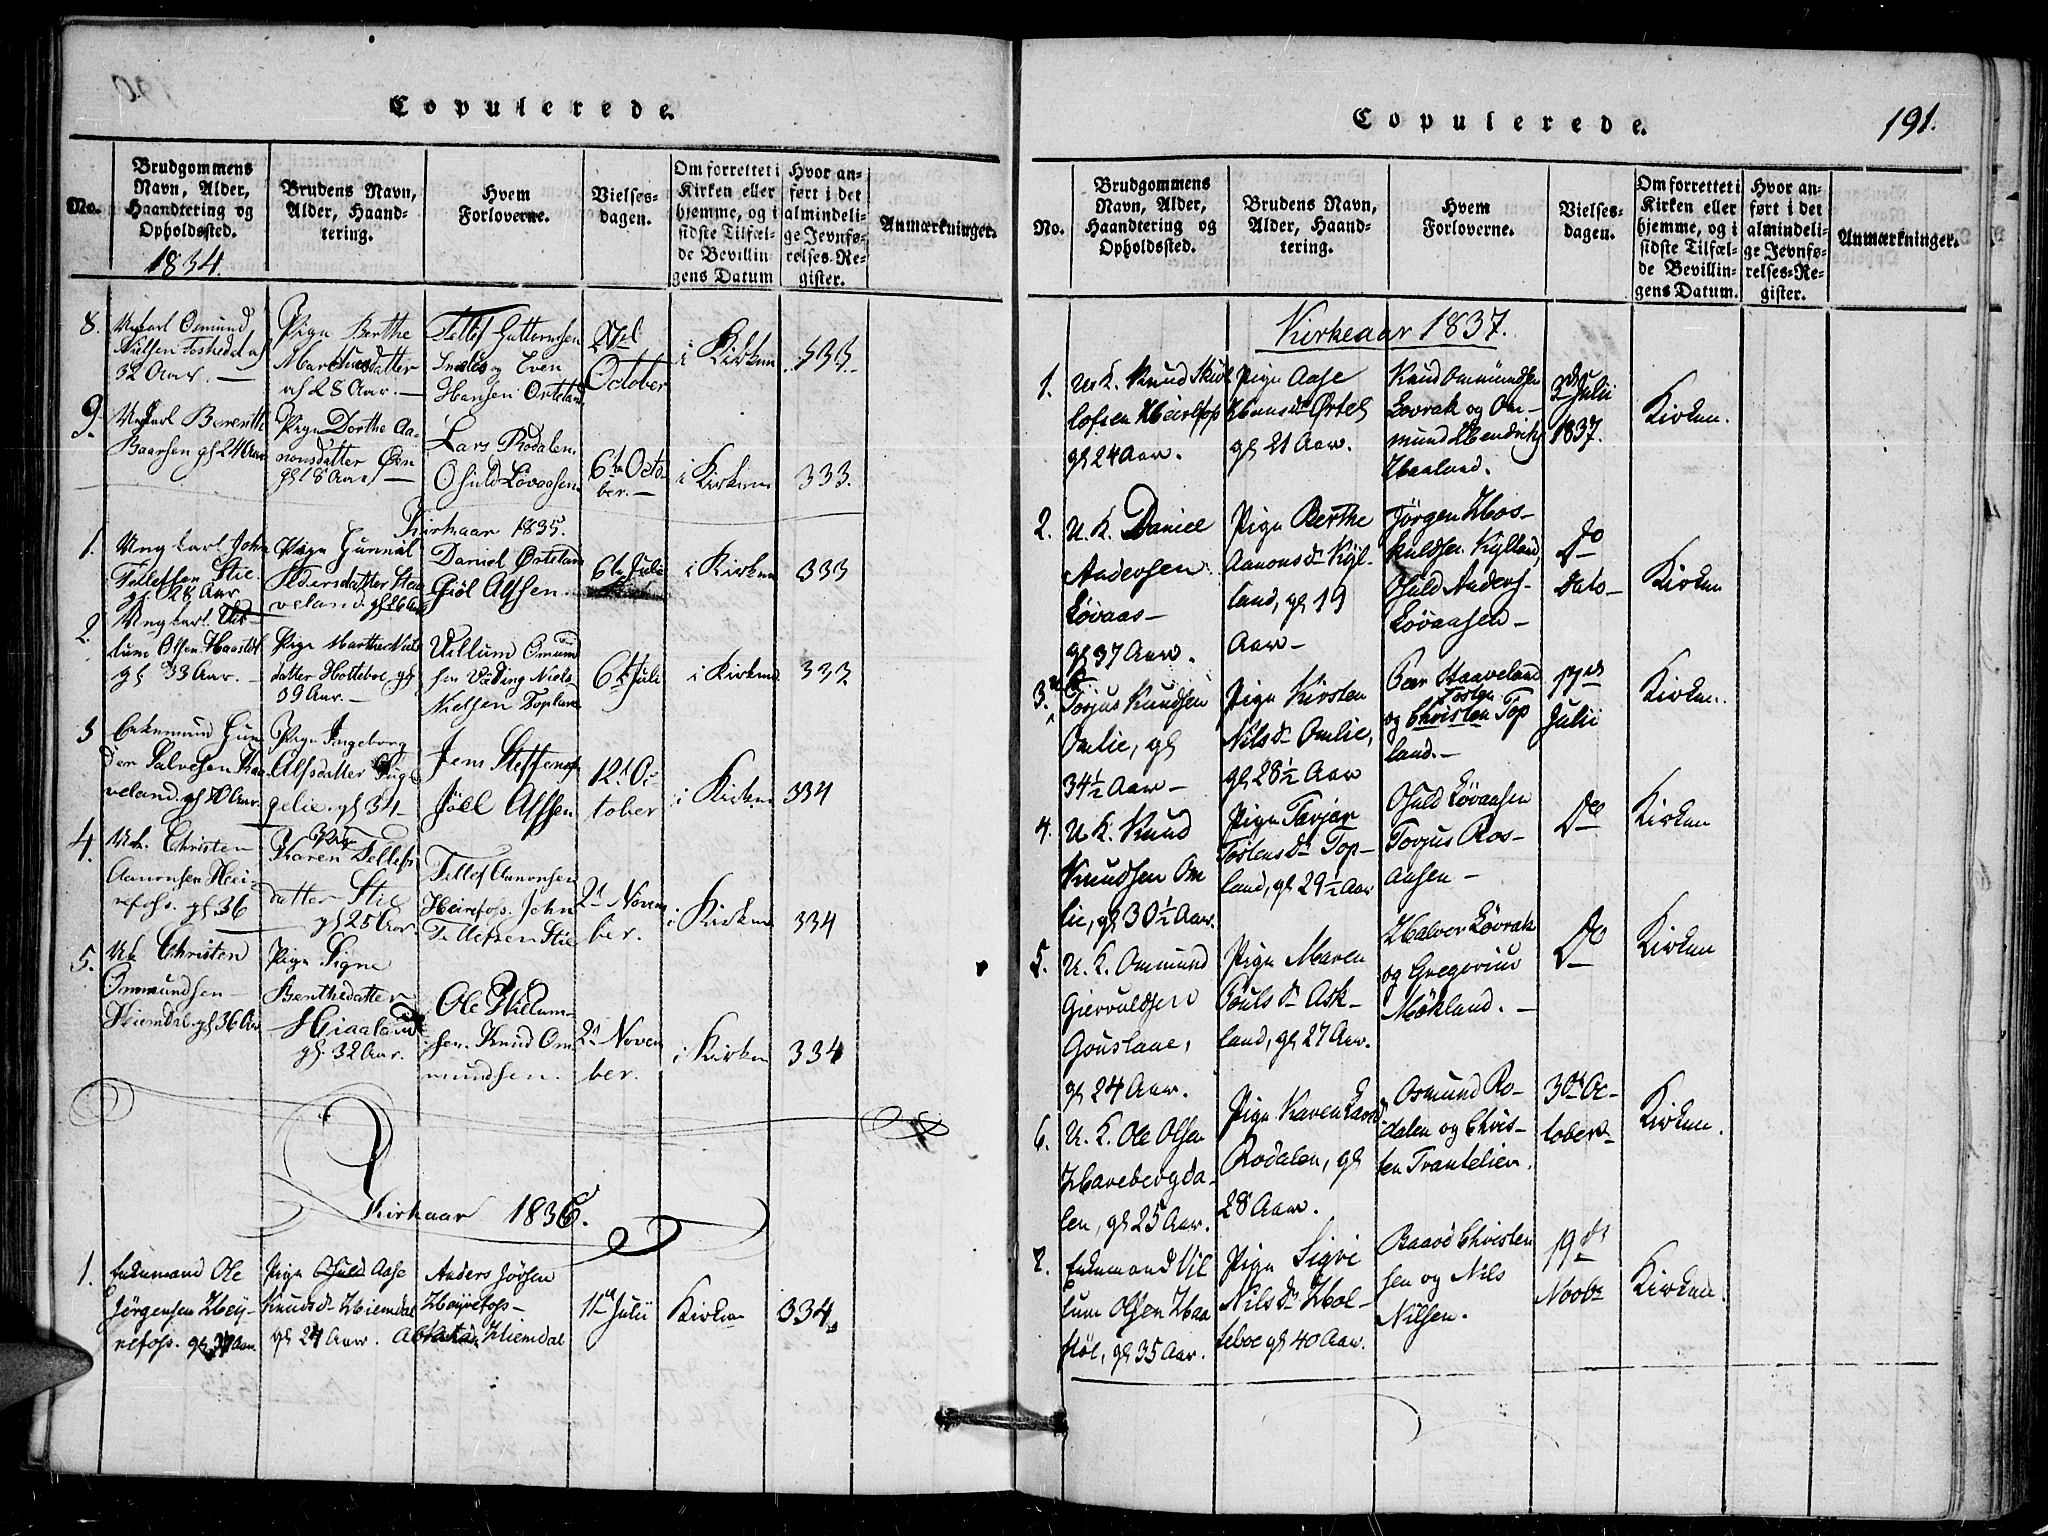 Copulerede.
No.
Brudgommens
Navn, Alder,
Haandtering og
Opholdssted.
1834.
Brudens Navn,
Alder, Haand-
tering.
Hvem
Forloverne.
Vielses-
dagen.
Om forrettet i
Kirken eller
hjemme, og i
sidste Tilfæl-
de Bevillin-
gens Datum
Hvor an-
ført i det
almindeli-
ge Jevnfø-
relses-Re-
gister.
Anmærkninger.
8.
Nielsen
32 Aar.
Pige Berthe
af 28 Aar.
Tellef Guttormsen
og Even
Hansen Ørteland
October
i Kirken
333.
9.
Baarsen gl 24 Aar
Pige Dorthe Aa-
nonsdatter
gl 18 Aar
Lars Rodalen
6te Octo-
ber.
i Kirken
333.
Kirkaar 1835.
1.
Ungkarl John
Tellefsen Stie
gl 28 Aar
Pige Gunnil
Pedersdatter Stea-
veland gl 26 Aar
Daniel Ørteland
Giöl Alfsen.
6te Julii
i Kirken
333
2.
Ungkarl Vil-
lum Olsen
gl 33 Aar.
Pige Marthe Niels
datter Holteboe, gl
39 Aar.
Villum Omund
sen Niels
Nielsen Topland
6te Juli
i Kirken
333
3
Enkemand Gun
der Salvesen
veland.
Pige Ingeborg
Alfsdatter
gelie. gl 34
Jens Steffens
Jöel Alfsen
12te Oc
tober
i Kirken
334
4.
Uk. Christen
Aanonsen Hei-
refoss. gl. 36
Pige
Karen Tellefs
datter Stie
gl 25 Aar.
Tellef Aanonsen
Heirefos. John
Tellefsen Stie
2n Novem
ber.
i Kirken
334
5.
Uk Christen
Ommundsen
Hiemdal. gl 36 Aar
Pige Signe
Benthedatter
Hiaaland
gl. 32 Aar.
Ole Willum-
sen. Knud Om
mundsen.
2n Novem
ber.
i Kirken
334
Kirkaar 1836.
1.
Enkemand Ole
Jørgensen Hey-
refoss.
Pige Aase
Knudsdr Hiemdal
gl 24 Aar.
Anders Jørsen
Heyrefoss
Hiemdal
11te Julii
Kirken
334
Copulerede.
191.
No.
Brudgommens
Navn, Alder,
Haandtering og
Opholdssted.
Brudens Navn,
Alder, Haand-
tering.
Hvem
Forloverne.
Vielses-
dagen.
Om forrettet i
Kirken eller
hjemme, og i
sidste Tilfæl-
de Bevillin-
gens Datum.
Hvor an-
ført i det
almindeli-
ge Jevnfø-
relses-Re-
gister.
Anmærkninger.
Kirkeaar 1837.
1.
U. K. Knud
Heirefos
gl 24 Aar.
Pige Aase
Hansdr Ørtel
gl 21 Aar.
Knud Ommundsen
Lovrak og Om-
mund Hendriks
Haaland.
3die Julii
1837.
Kirken.
2.
U. K. Daniel
Andersen
Løvaas
gl 37 Aar.
Pige Berthe
Aanonsdr Kyl-
land, gl 19
Aar
Jörgen Hos-
kuldsen Kylland,
Osuld Anders-
Løvaasen
Do
Dato
Kirken
3.
Torjus Knudsen
Omlie, gl
34½ Aar
Pige Kirsten
Nilsdr Omlie,
gl 28½ Aar
Peer Haaveland
Tosten
og Christen Top
land.
17de
Julii
Kirken.
4.
U. K. Knud
Knudsen Om
lie, gl 30½ Aar.
Pige Torjor
Tostensdr Top-
land, gl 29½ Aar
Osuld Løvaasen
Torjus Ros-
aasen
Do
Kirken
5.
U. K. Ommund
Giervuldsen
Gouslaae,
gl 24 Aar.
Pige Maren
Poulsdr Ask-
land, gl 27 Aar.
Halvor Løvrak
og Gregorius
Mökland.
Do
Kirken
6.
U. K. Ole Olsen
Harebergda-
len, gl 25 Aar.
Pige Karen Larsd
Rodalen, gl
28 Aar.
Osmund Ro-
dalen og Chris-
ten Trantelien.
30te Oc-
tober
Kirken.
7.
Enkemand Vil
lum Olsen Haa
støl, gl 35 Aar.
Pige Sigri
Nilsdr Hol-
teboe gl 40 Aar.
Baard Christen
sen og Nils
Nilsen.
19de
Novbr
Kirken.